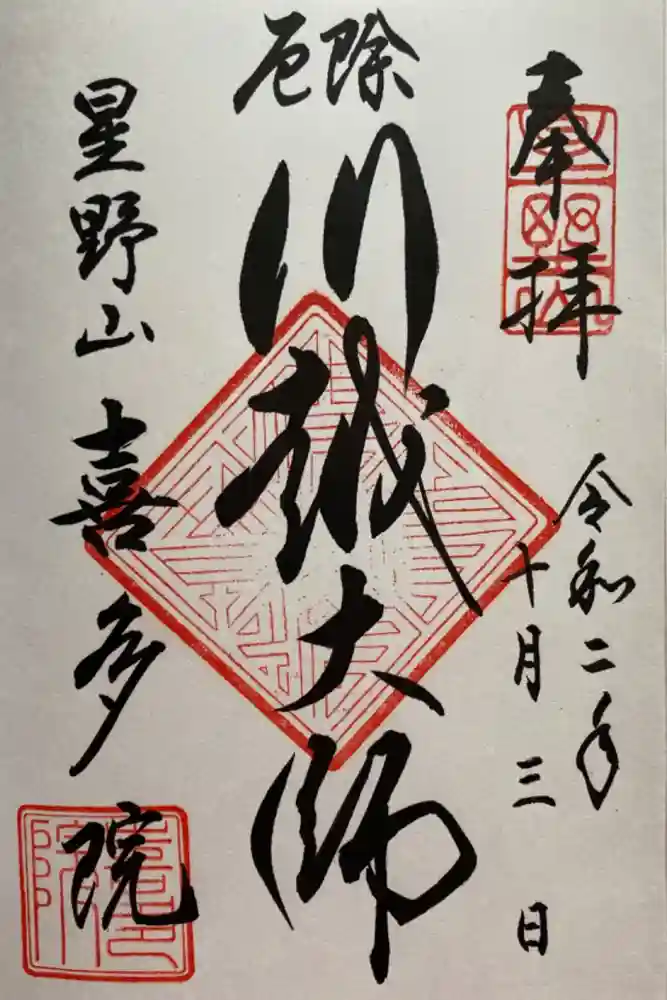 奉拝
令和二年
十月三日
厄除
川越大師
星野山 喜多院